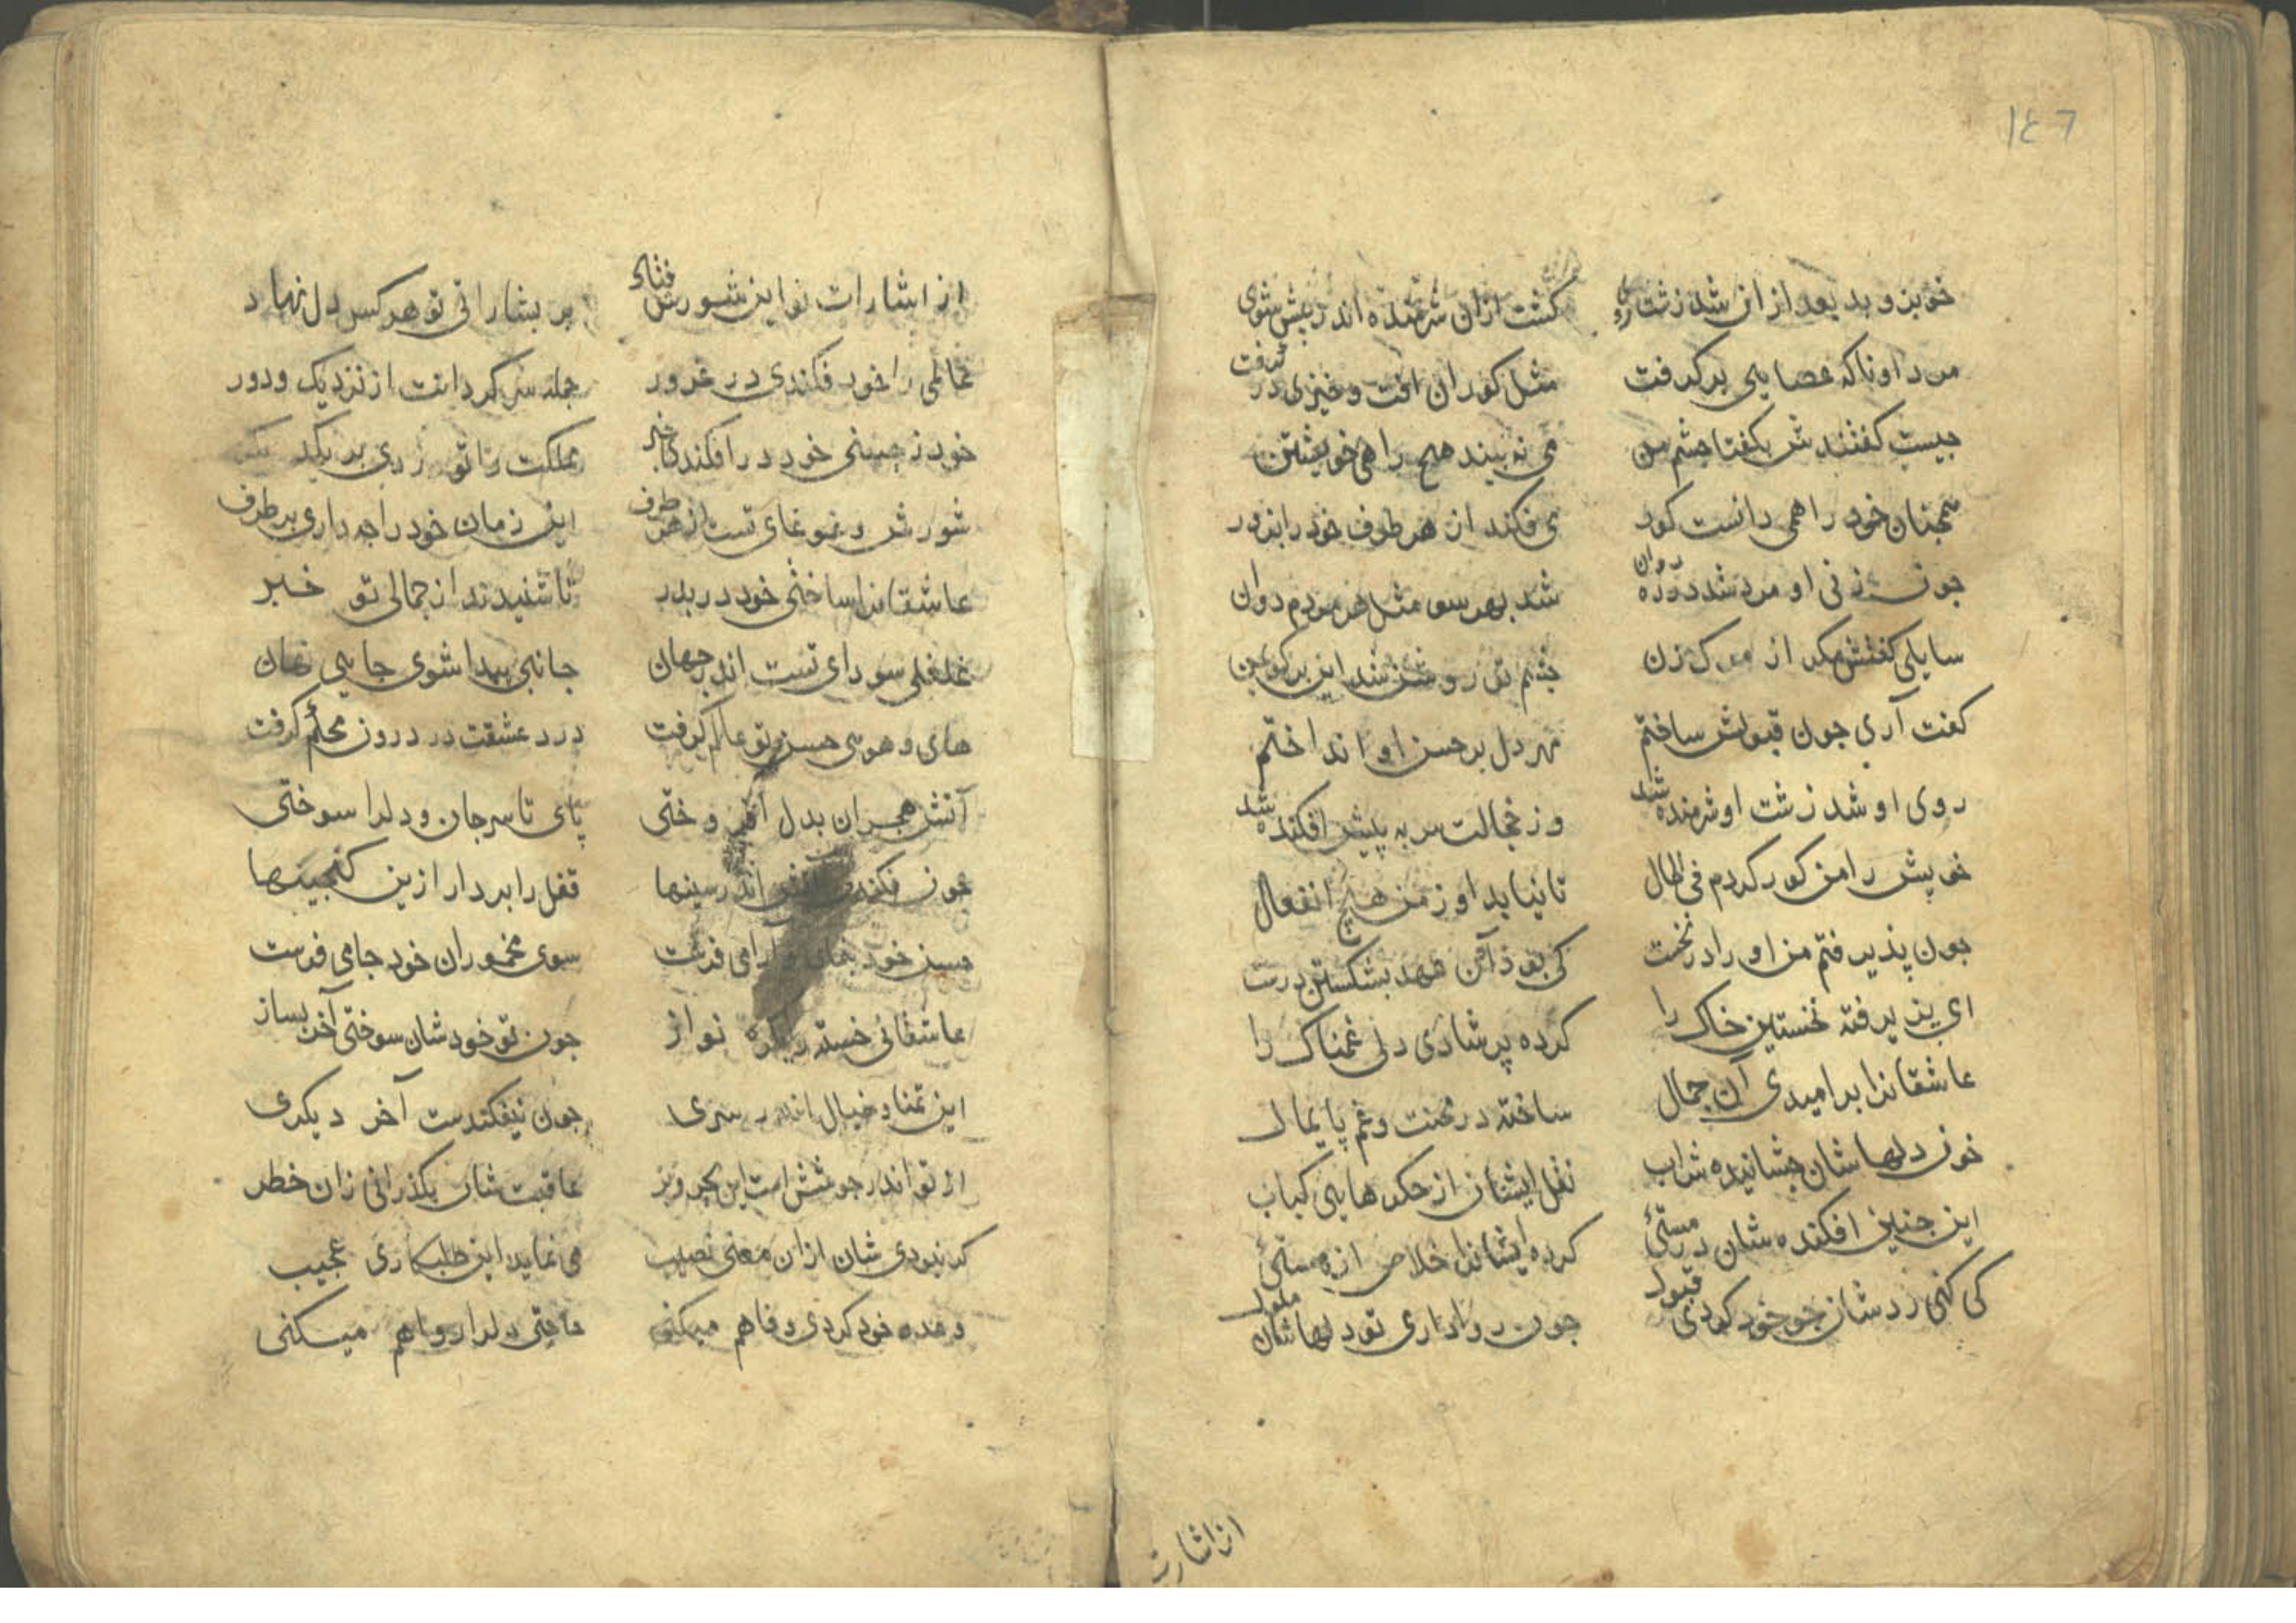 ١٤٦
خوبرو بد بعد از ان شد زشت روی کشت ازان شرمنده اندر پیش شوی
مرد او ناکه عصایی بر کرفت مثل کوران افت و خیزی در کرفت
جیست کفتندش بکفتا چشم من می نه بیند هیچ راهی خویشتن
همجنان خود را همی دانست کور می فکند از هر طرف خود را بزور
جون زنی او مرد شد دوره روان شد بهر سو مثل هر مردم دوان
سایلی کفتش مکر از مرک زن چشم تو روشن شد این بر کو بمن
کفت آری جون قبولش ساختم مهر دل بر حسن او انداختم
روی او شد زشت او شرمنده شد وز خجالت سر به پیش افکنده شد
خویش را من کور کردم فی الحال تا نیابد او ز من هیچ انفعال
جون پذیرفتم من او را در نخست کی بود آن عهد بشکستن درست
ای پذیرفته نخستین خاک را کرده پر شادی دل غمناک را
عاشقانرا بر امیدی آن جمال ساخته در محنت و غم پایمال
خون دلهاشان چشانیده شراب نقل ایشان از جکرهایی کباب
این جنین افکنده شان در مستئ کرده ایشانرا خلاص از هستئ
کی کنی رد شان جو خود کردی قبول جون روا داری تو دلهاشان ملول
از اشارت
از اشارات تو این شورش فتاد بر بشاراتی تو هر کس دل نهاد
عالمی را خود فکندی در غرور جمله سر کردانت از نزدیک و دور
خود ز حسنی خود در افکندی خبر مملکت را تو زدی بر یکد کر
شورش و غوغای تست از هر طرف این زمان خود را جه داری بر طرف
عاشقانرا ساختی خود در بدر تا شنیدند از جمالی تو خبر
غلغلی سودای تست اندر جهان جانبی پیدا شوی جایی نهان
های و هوی حسن تو عالم کرفت درد عشقت در درون محکم کرفت
آتش هجران بدل افروختی پای تا سر جان و دلرا سوختی
جون فکندی اندر سینها قفل را بردار ازین کنجینها
حسن خود بنمای و آرامی فرست سوی مخموران خود جامی فرست
عاشقانی خسته را نواز جون تو خودشان سوختی آخر بساز
این تمنا و خیال اندر سری جون نیفکندست آخر دیکری
از تو اندر جوشش است این بحر و بر عاقبت شان بکذرانی زان خطر
کر نبودی شان ازان معنی نصیب می نماید این طلبکاری عجیب
وعده خود کردی وفا هم میکنی حاجتی دلرا روا هم میکنی